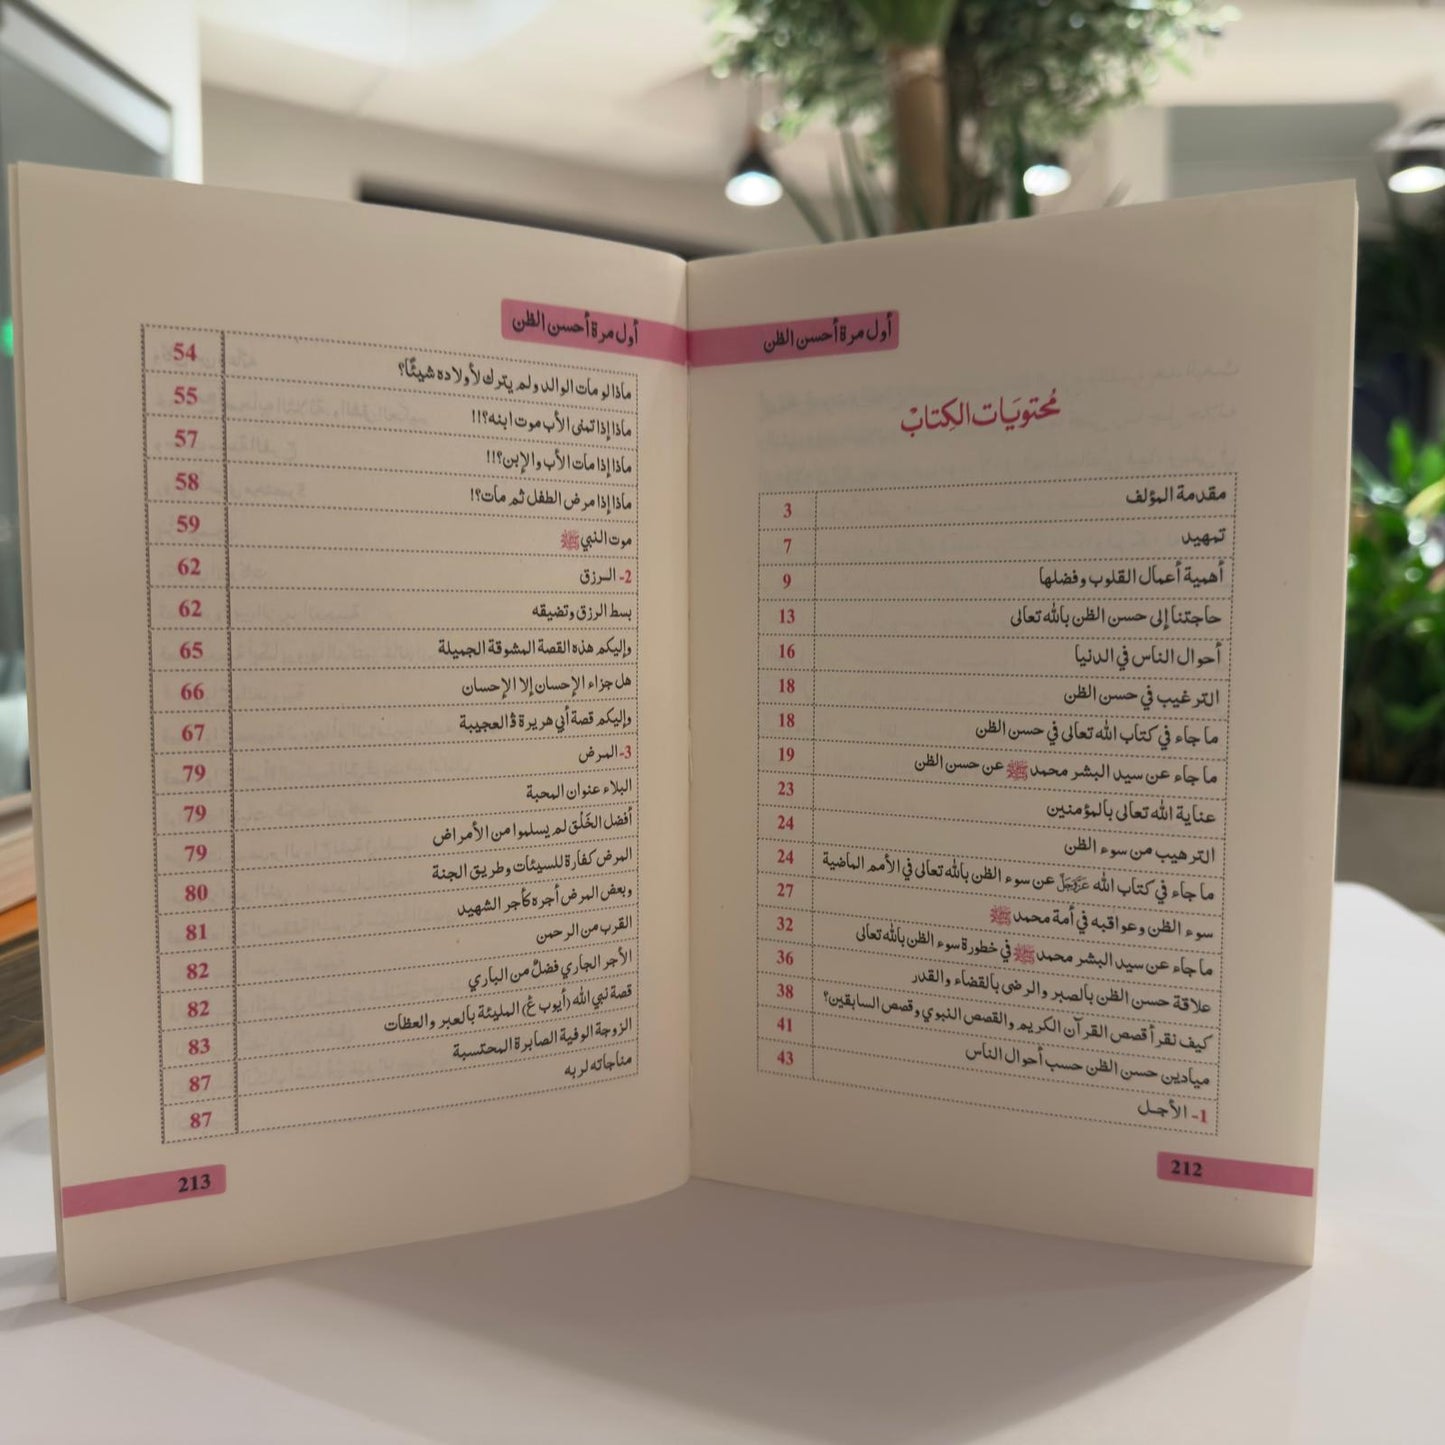 أول مرة أحسن الظن
مُحتويَات الكِتابْ
مقدمة المؤلف 3
تمهيد 7
أهمية أعمال القلوب وفضلها 9
حاجتنا إلى حسن الظن بالله تعالى 13
أحوال الناس في الدنيا 16
الترغيب في حسن الظن 18
ما جاء في كتاب الله تعالى في حسن الظن 18
ما جاء عن سيد البشر محمد ﷺ عن حسن الظن 19
عناية الله تعالى بالمؤمنين 23
الترهيب من سوء الظن 24
ما جاء في كتاب الله عَزَّوَجَلَّ عن سوء الظن بالله تعالى في الأمم الماضية 24
سوء الظن وعواقبه في أمة محمد ﷺ 27
ما جاء عن سيد البشر محمد ﷺ في خطورة سوء الظن بالله تعالى 32
علاقة حسن الظن بالصبر والرضى بالقضاء والقدر 36
كيف نقرأ قصص القرآن الكريم والقصص النبوي وقصص السابقين؟ 38
ميادين حسن الظن حسب أحوال الناس 41
1- الأجـل 43
212
أول مرة أحسن الظن
ماذا لو مات الوالد ولم يترك لأولاده شيئًا؟ 54
ماذا إذا تمنى الأب موت ابنه؟!! 55
ماذا إذا مات الأب والإبن؟!! 57
ماذا إذا مرض الطفل ثم مات؟! 58
موت النبي ﷺ 59
2- الـرزق 62
بسط الرزق وتضيقه 62
وإليكم هذه القصة المشوقة الجميلة 65
هل جزاء الإحسان إلا الإحسان 66
وإليكم قصة أبي هريرة ڤ العجيبة 67
3- المرض 79
البلاء عنوان المحبة 79
أفضل الخَلْق لم يسلموا من الأمراض 79
المرض كفارة للسيئات وطريق الجنة 80
وبعض المرض أجره كأجر الشهيد 81
القرب من الرحمن 82
الأجر الجاري فضلٌ من الباري 82
قصة نبي الله (أيوب غ) المليئة بالعبر والعظات 83
الزوجة الوفية الصابرة المحتسبة 87
مناجاته لربه 87
213